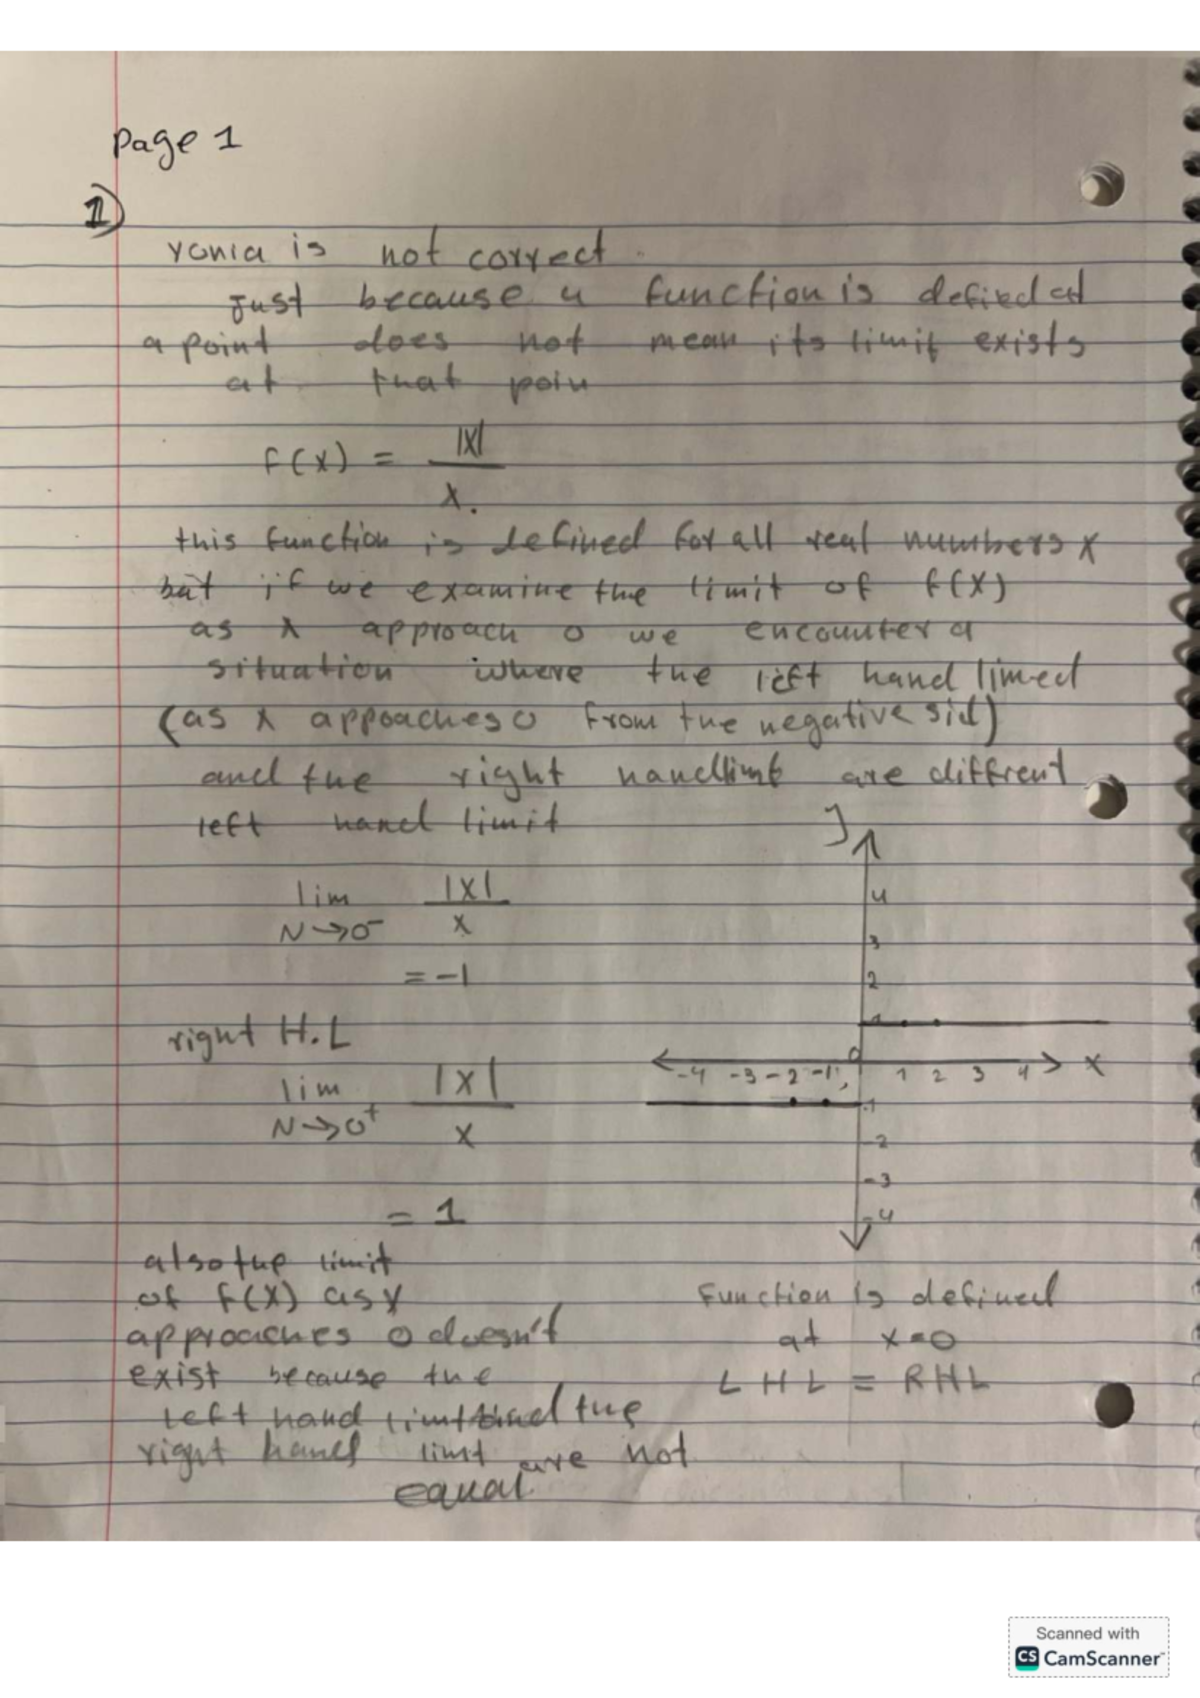 Page 1
1)
Yonia is not correct.
Just because a function is defied at
a point does not mean its limit exists
at that poin
f(x) = |x|
x.
this function is defined for all real numbers x
but if we examine the limit of f(x)
as x approach 0 we encounter a
situation where the left hand limed
(as x appoaches 0 from the negative sid)
and the right handlimt are diffrent
left hand limit
lim |x|
N→0⁻ x
= -1
right H.L
lim |x|
N→0⁺ x
= 1
also the limit
of f(x) as y
approaches 0 doesn't
exist because the
left hand limt and the
right hand limt are not
equal.
y
4
3
2
1
0
-4 -3 -2 -1 1 2 3 4 x
-1
-2
-3
-4
Function is defined
at x=0
LHL = RHL
Scanned with
CS CamScanner